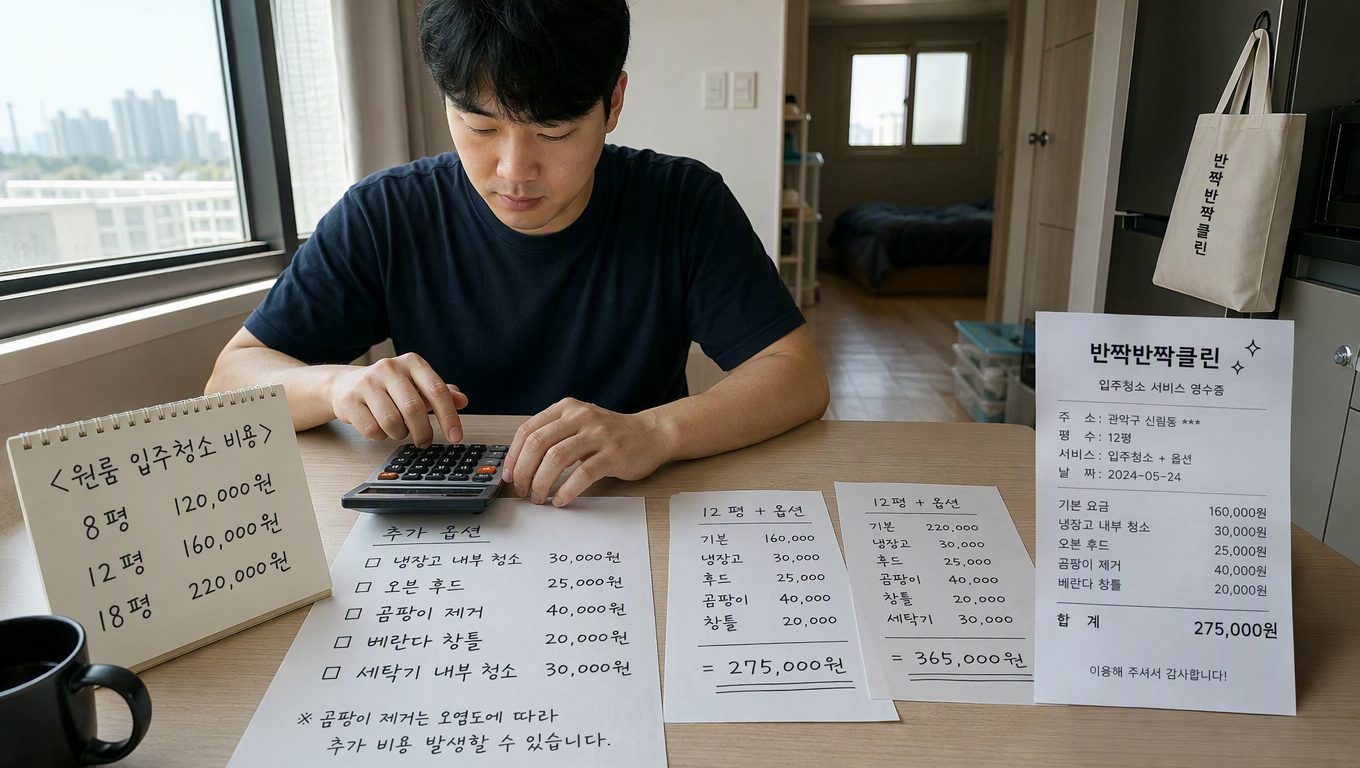 <원룸 입주청소 비용>
8평 120,000원
12평 160,000원
18평 220,000원
추가 옵션
□ 냉장고 내부 청소 30,000원
□ 오븐 후드 25,000원
□ 곰팡이 제거 40,000원
□ 베란다 창틀 20,000원
□ 세탁기 내부 청소 30,000원
※ 곰팡이 제거는 오염도에 따라
추가 비용 발생할 수 있습니다.
12평 + 옵션
기본 160,000
냉장고 30,000
후드 25,000
곰팡이 40,000
창틀 20,000
= 275,000원
12평 + 옵션
기본 220,000
냉장고 30,000
후드 25,000
곰팡이 40,000
창틀 20,000
세탁기 30,000
= 365,000원
반짝반짝클린
반짝반짝클린
입주청소 서비스 영수증
주 소 : 관악구 신림동 ***
평 수 : 12평
서비스 : 입주청소 + 옵션
날 짜 : 2024-05-24
기본 요금 160,000원
냉장고 내부 청소 30,000원
오븐 후드 25,000원
곰팡이 제거 40,000원
베란다 창틀 20,000원
합 계 275,000원
이용해 주셔서 감사합니다!